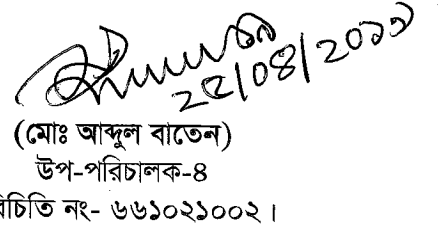 ২৫/০৪/২০১১
(মোঃ আব্দুল বাতেন)
উপ-পরিচালক-৪
রিচিতি নং- ৬৬১০২১০০২।